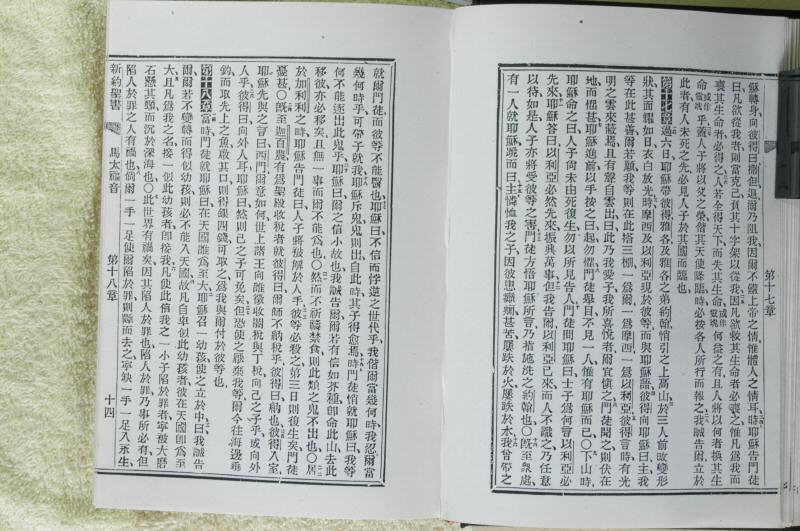 第十七章
蘇轉身向彼得曰撒但退爾乃阻我因爾不體上帝之情惟體人之情耳時耶蘇告門徒
曰凡欲從我者則當克己負其十字架以從我因凡欲救其生命者必喪之惟凡爲我而
喪其生命者必得之人若全得天下而失其生命或作靈魂何益之有且人將以何者換其生
命或作靈魂乎蓋人子將以父之榮偕其天使降臨時必按各人所行而報之我誠告爾立於
此者有人未死之先必見人子於其國而臨也
第十七章過六日耶蘇帶彼得雅各及雅各之弟約翰悄引之上高山於三人前改變形
狀其面耀如日衣白放光時摩西及以利亞現於彼等而與耶蘇語彼得向耶蘇曰主我
等在此甚善爾若願我等則在此搭三棚一爲爾一爲摩西一爲以利亞彼得言時有光
明之雲來蔽焉且有聲自雲出曰此乃我愛子我所喜悅者爾宜聽之門徒聞之則伏在
地而懼甚耶蘇進前以手按之曰起勿懼門徒舉目不見一人惟有耶蘇而已〇下山時
耶蘇命之曰人子尚未由死復生勿以所見告人門徒問耶蘇曰士子爲何言以利亞必
先來耶蘇答曰以利亞必然先來振興萬事但我告爾以利亞已來而人不識之乃任意
以待如是人子亦將受彼等之害門徒方悟耶蘇所言乃指施洗之約翰也〇旣至衆處
有一人就耶蘇跪而曰主憐恤我之子因彼患癲癇甚苦屢跌於火屢跌於水我曾帶之
就爾門徒而彼等不能醫也耶蘇曰不信而悖逆之世代乎我偕爾當幾何時我忍爾當
幾何時乎可帶子就我耶蘇斥鬼鬼則出自此時其子得愈焉時門徒悄就耶蘇曰我等
何不能逐出此鬼乎耶蘇曰爾之信小故也我誠告爾爾若有信如芥種卽命此山去此
移彼亦必移矣且無一事而爾不能爲也〇然而不祈禱禁食則此類之鬼不出也〇居
於加利利之時耶蘇告門徒曰人子將被解於人手彼等必殺之第三日則復生矣門徒
憂甚〇旣至迦百農有爲聖殿收稅者就彼得曰爾師不納稅乎彼得曰納也彼得入室
耶蘇先與之言曰西門爾意如何世上諸王向誰徵收關稅與丁稅向己之子乎或向外
人乎彼得曰向外人耶蘇曰然則己之子可免矣但恐使之厭棄我等爾今往海邊垂
釣而取先上之魚啟其口則得銀四錢可取之爲我與爾付於彼等也
第十八章當時門徒就耶蘇曰在天國誰爲至大耶蘇召一幼孩使之立於中曰我誠告
爾爾若不變轉而得似幼孩則必不能入天國故凡自卑似此幼孩者彼在天國卽爲至
大且凡爲我之名接一似此幼孩者卽接我凡使此信我之一小子陷於罪者寧被大磨
石懸其頸而沉於深海也〇此世界有禍矣因其陷人於罪也陷人於罪乃事所必有但
陷人於罪之人有禍也倘爾一手一足使爾陷於罪則斷而去之寧缺一手一足入永生
新約聖書
馬太福音
第十八章
十四